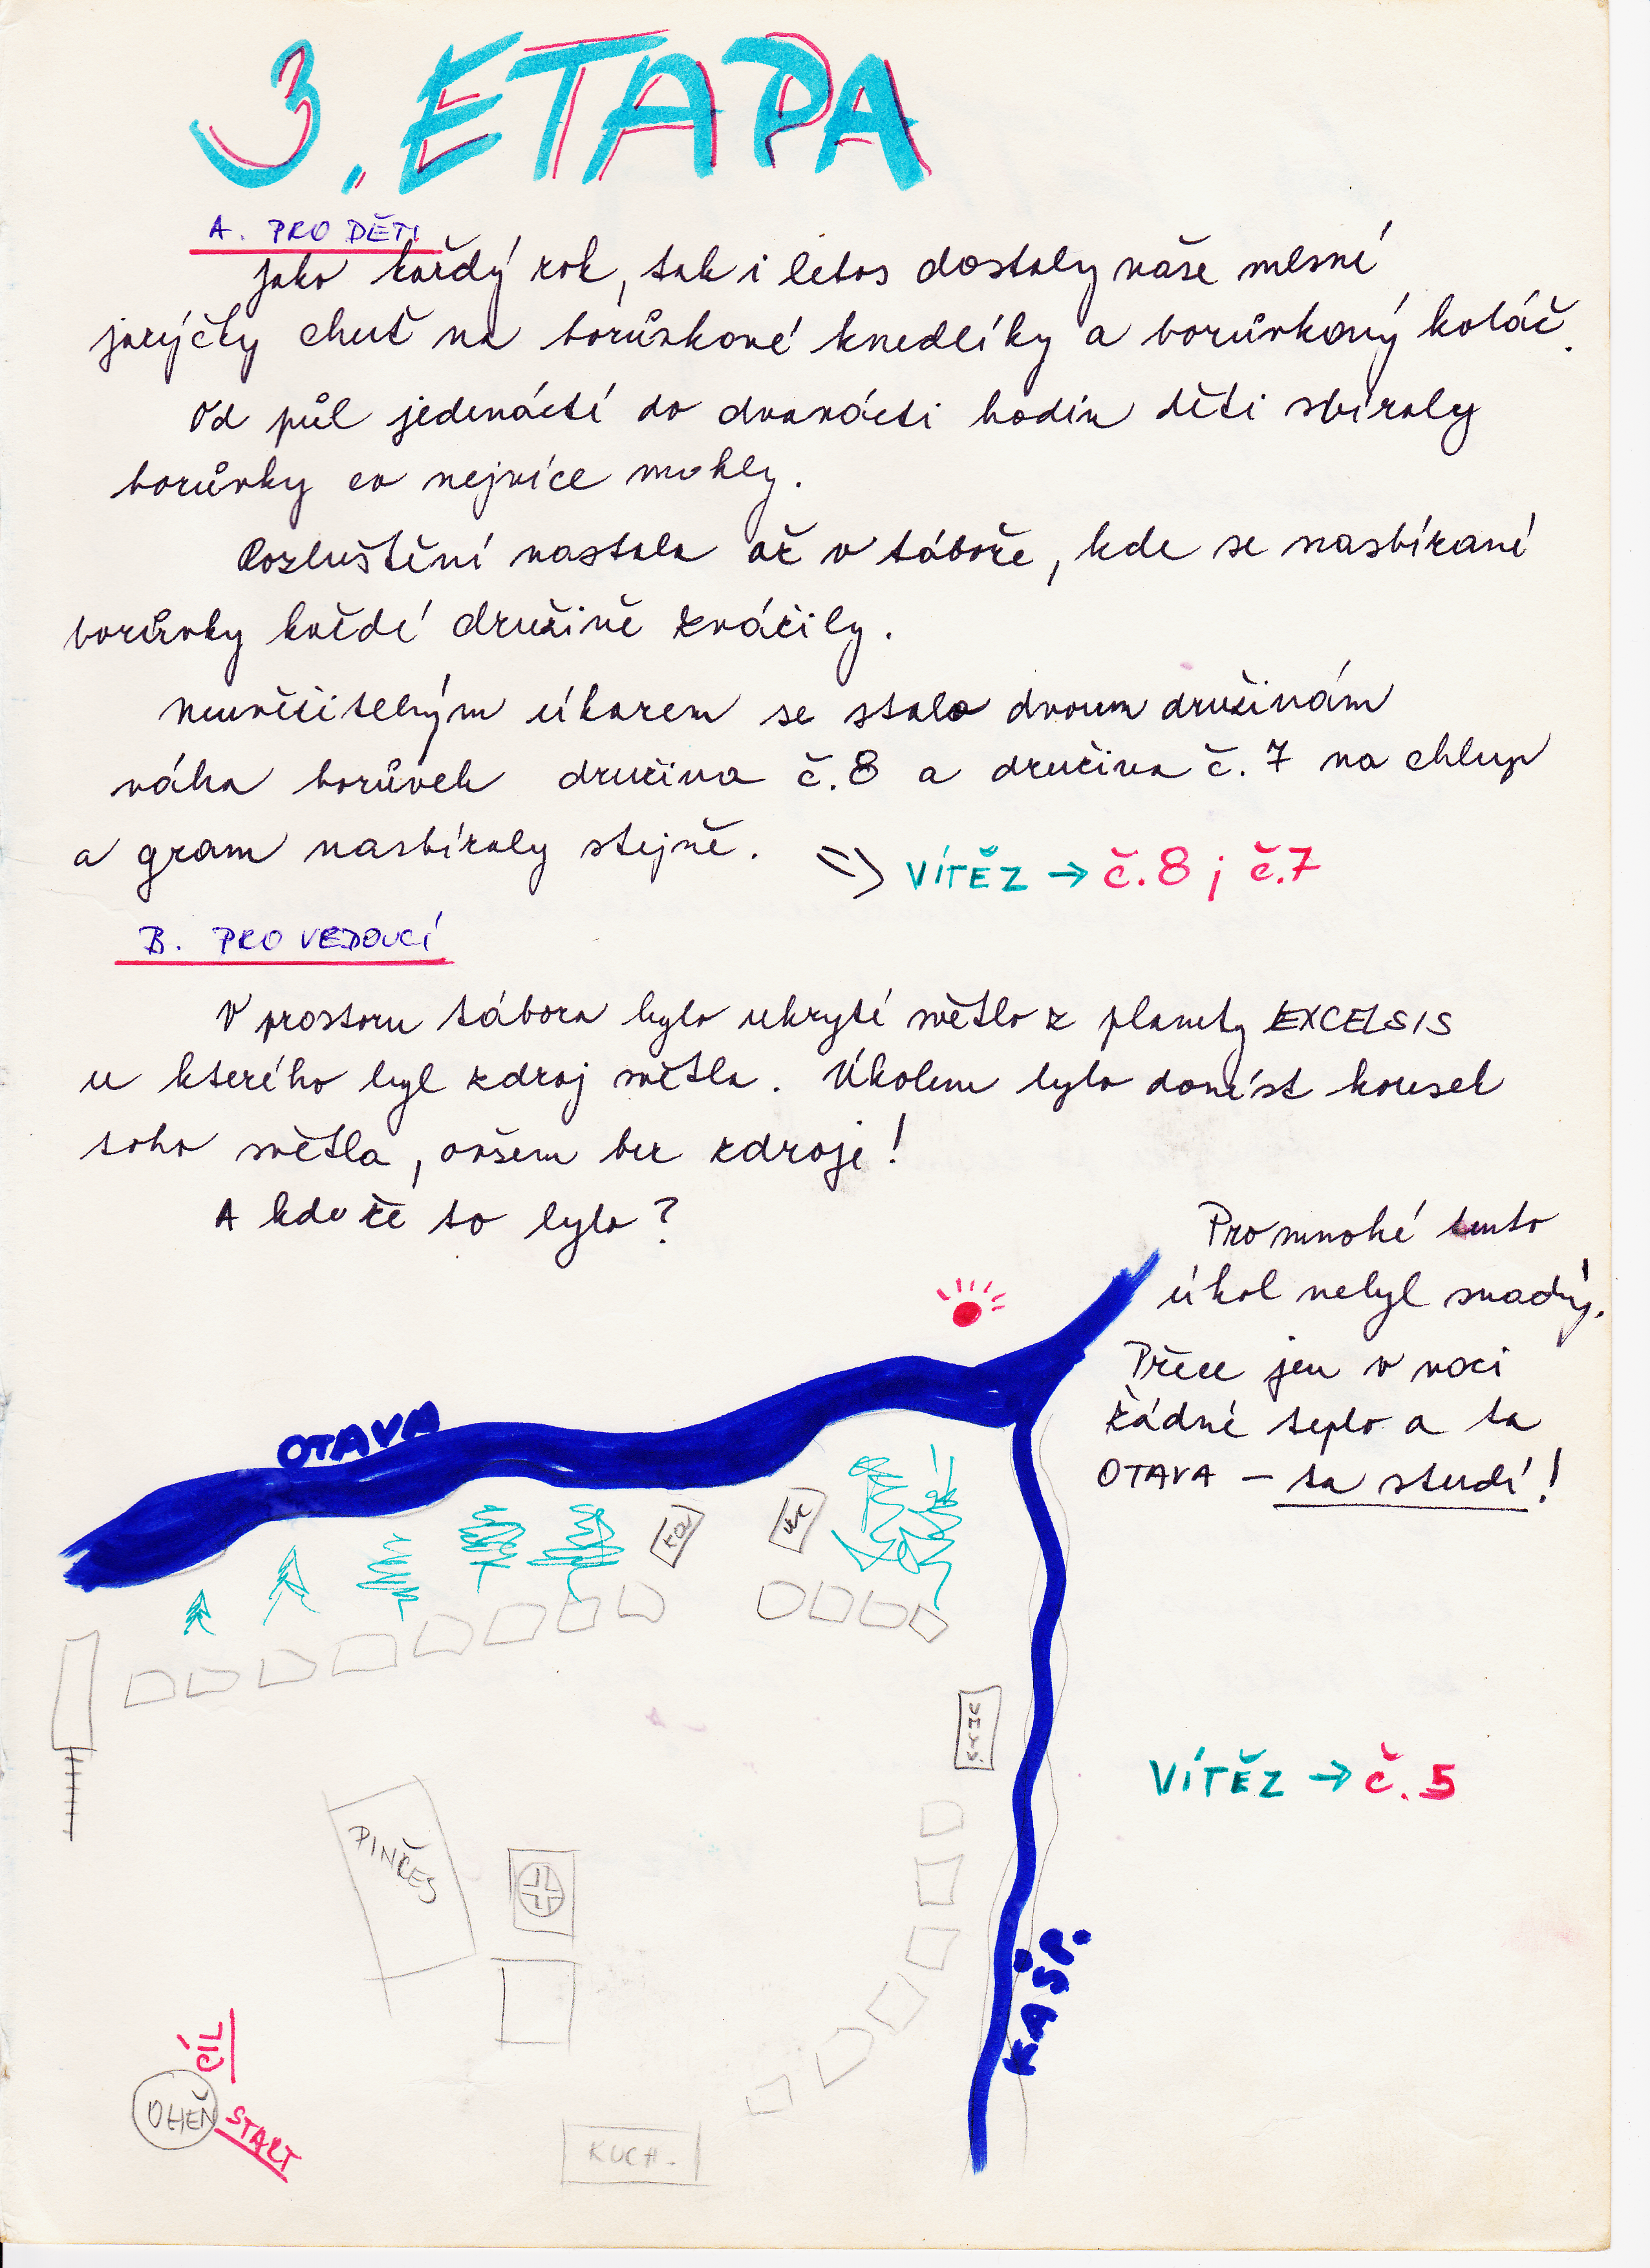 3. ETAPA
A. PRO DĚTI
Jako každý rok, tak i letos dostaly naše mlsné
jazýčky chuť na borůvkové knedlíky a borůvkový koláč.
Od půl jedenácté do dvanácti hodin děti sbíraly
borůvky co nejvíce mohly.
Rozluštění nastalo až v táboře, kde se nasbírané
borůvky každé družině zvážily.
Neuvěřitelným úkazem se stala dvoum družinám
váha borůvek družina č.8 a družina č.7 na chlup
a gram nasbíraly stejně. => VÍTĚZ → č.8 ; č.7
B. PRO VEDOUCÍ
V prostoru tábora bylo ukryté světlo z planety EXCELSIS
u kterého byl zdroj světla. Úkolem bylo donést kousek
toho světla, ovšem bez zdroje!
A kdeže to bylo?
Pro mnohé tento
úkol nebyl snadný.
Přece jen v noci
žádné teplo a ta
OTAVA – ta studí!
OTAVA
WC
UMÝV.
VÍTĚZ → č. 5
PINČES
KAŠP.
CÍL
OHEŇ
START
KUCH.